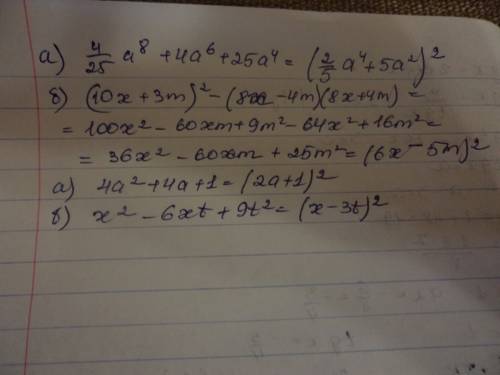 а) 4/25 a⁸ + 4a⁶ + 25a⁴ = (2/5 a⁴ + 5a²)²
б) (10x + 3m)² - (8x - 4m)(8x + 4m) =
= 100x² - 60xm + 9m² - 64x² + 16m² =
= 36x² - 60xm + 25m² = (6x - 5m)²
а) 4a² + 4a + 1 = (2a + 1)²
б) x² - 6xt + 9t² = (x - 3t)²